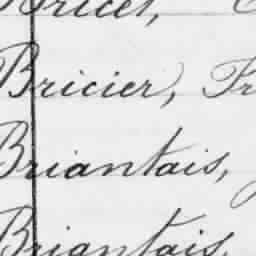 Bricet,
Bricier, Fr
Briantais,
Briantais,